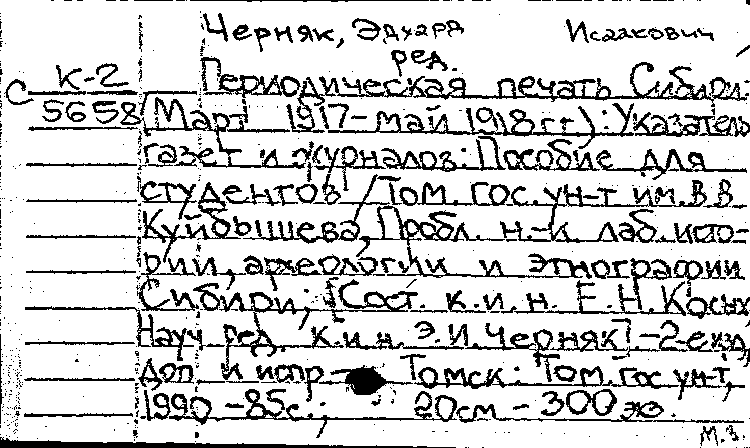 Черняк, Эдуард Исаакович
ред.
К-2
С
5658
Периодическая печать Сибири.
(Март 1917 - май 1918 гг.): Указатель
газет и журналов: Пособие для
студентов / Том. гос. ун-т им. В В
Куйбышева, Пробл. н.-и. лаб. исто-
рии, археологии и этнографии
Сибири; [Сост. к.и.н. Е.Н. Косых,
Науч ред. к.и.н. Э.И. Черняк]. - 2-е изд,
доп и испр. - Томск: Том. гос ун-т,
1990 - 85с.; 20см - 300 экз.
М.З